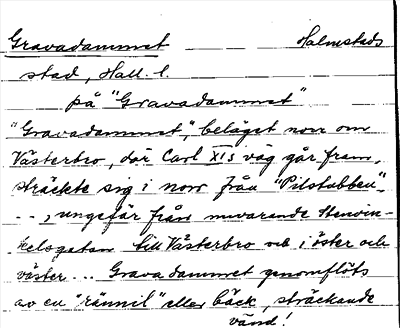 Gravadammet Halmstads
stad, Hall. l.
på "Gravadammet"
"Gravadammet", beläget norr om
Västerbro, där Carl XIs väg går fram,
sträckte sig i norr från "Pilstubben"
--, ungefär från nuvarande Stenvin-
kelsgatan till Västerbro och i öster och
väster... Gravadammet genomflöts
av en "rännil" eller bäck, sträckande
vänd!